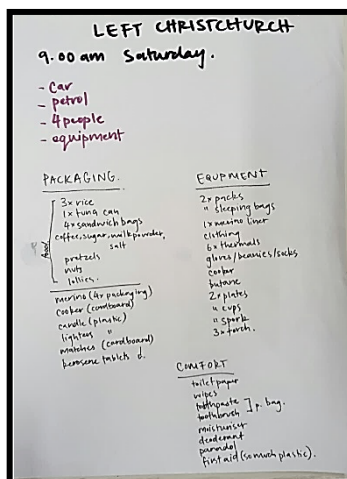 LEFT CHRISTCHURCH
9.00 am Saturday.
- car
- petrol
- 4 people
- equipment
PACKAGING.
3 x rice
1 x tuna can
4 x sandwich bags
coffee, sugar, milk powder,
salt
pretzels
nuts
lollies.
food
merino (4 x packaging)
cooker (cardboard)
candle (plastic)
lighters "
matches (cardboard)
kerosene tablets
EQUPMENT
2 x packs
" sleeping bags
1 x merino liner
clothing
6 x thermals
gloves/beanies/socks
cooker
butane
2 x plates
" cups
" spork
3 x torch.
COMFORT
toilet paper
wipes
toothpaste ] p. bag.
toothbrush
moisturiser
deodorant
panadol
first aid (so much plastic).